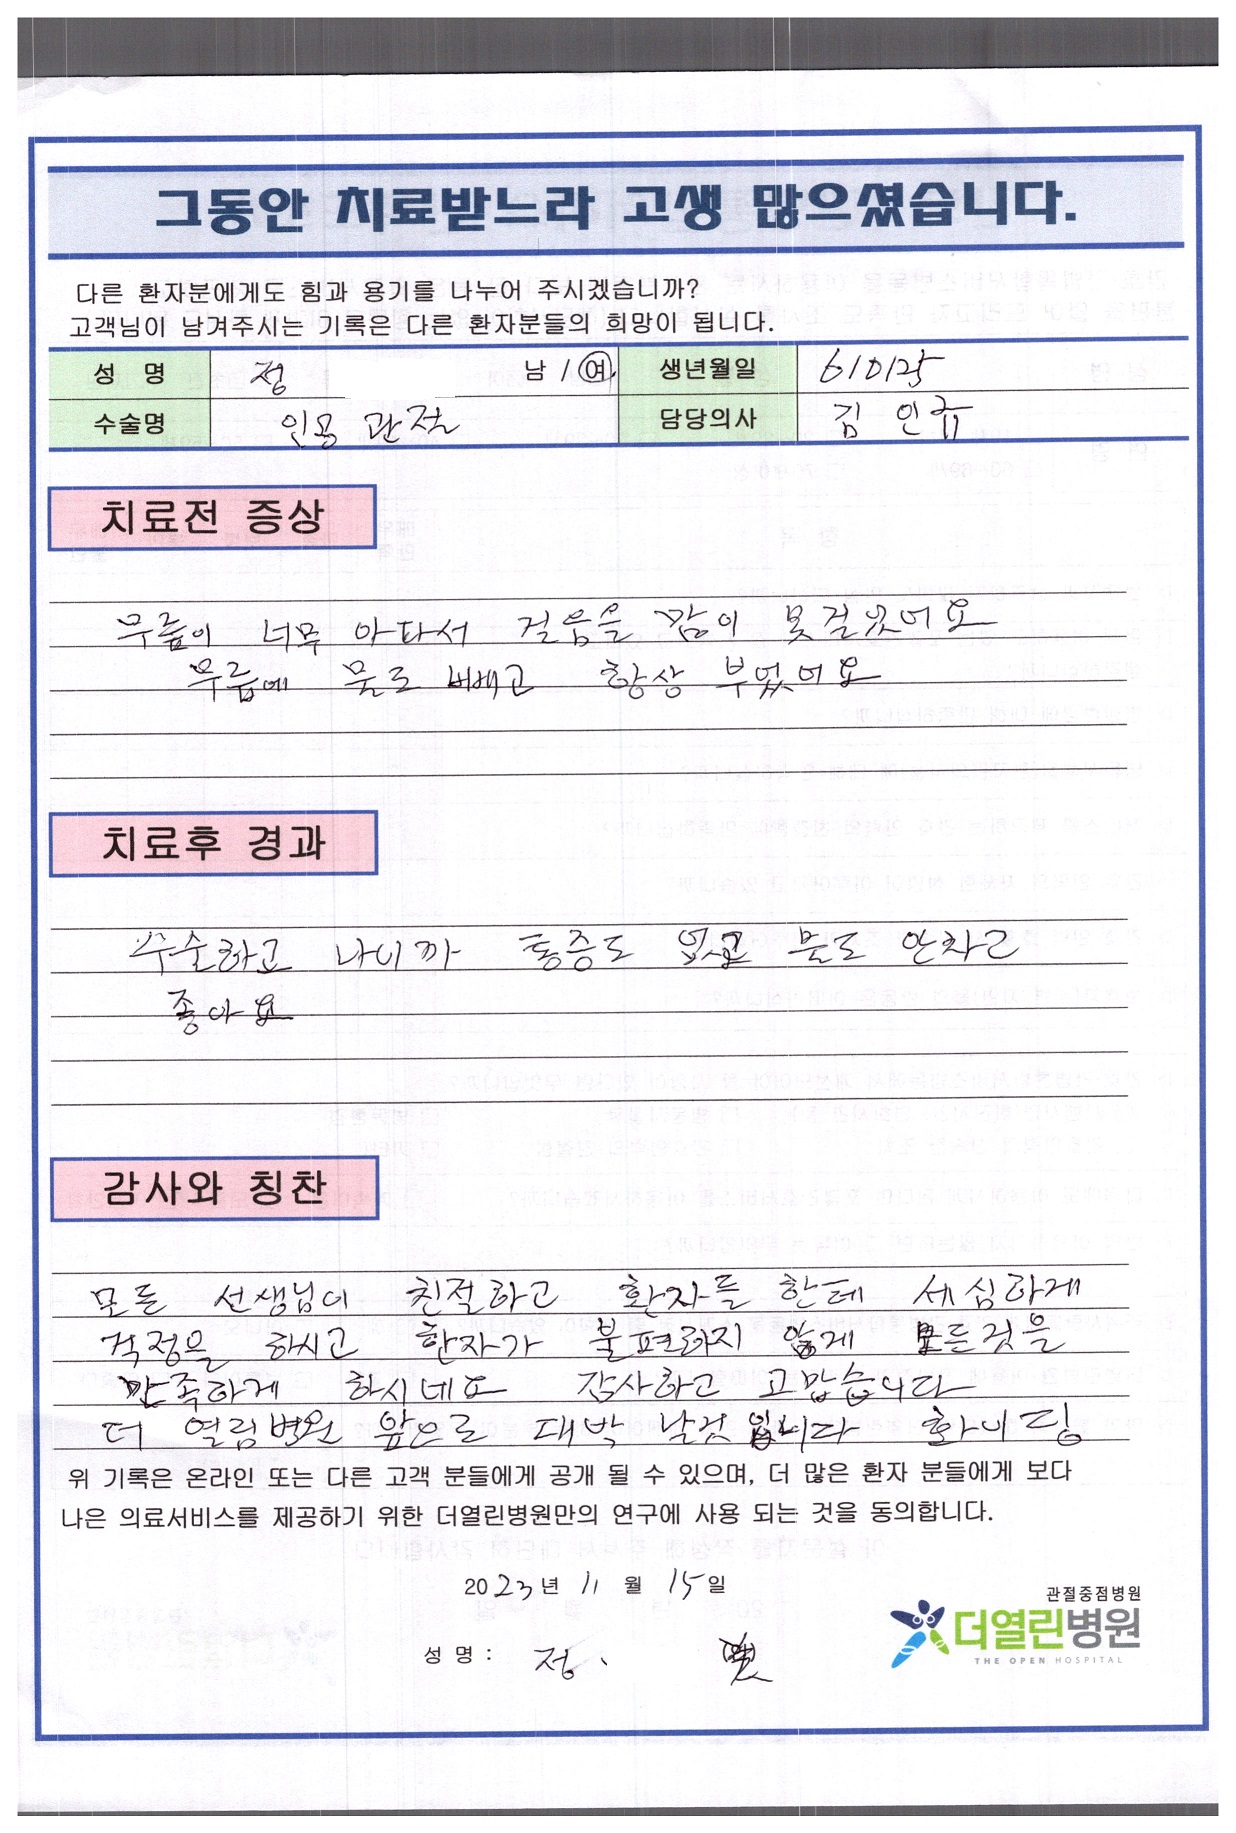 그동안 치료받느라 고생 많으셨습니다.
다른 환자분에게도 힘과 용기를 나누어 주시겠습니까?
고객님이 남겨주시는 기록은 다른 환자분들의 희망이 됩니다.
성 명 정 남 / 여 생년월일 610125
수술명 인공 관절 담당의사 김 인규
치료전 증상
무릎이 너무 아파서 걸음을 많이 못걸었어요
무릎에 물도 빼고 항상 부었어요
치료후 경과
수술하고 나이까 통증도 없고 물도 안차고
좋아요
감사와 칭찬
모든 선생님이 친절하고 환자들 한테 세심하게
걱정을 하시고 한자가 불편하지 않게 모든것을
만족하게 하시네요 감사하고 고맙습니다
더 열림병원 앞으로 대박 날것 입니다 화이딩
위 기록은 온라인 또는 다른 고객 분들에게 공개 될 수 있으며, 더 많은 환자 분들에게 보다
나은 의료서비스를 제공하기 위한 더열린병원만의 연구에 사용 되는 것을 동의합니다.
2023년 11 월 15일
성 명 : 정
관절중점병원
더열린병원
THE OPEN HOSPITAL